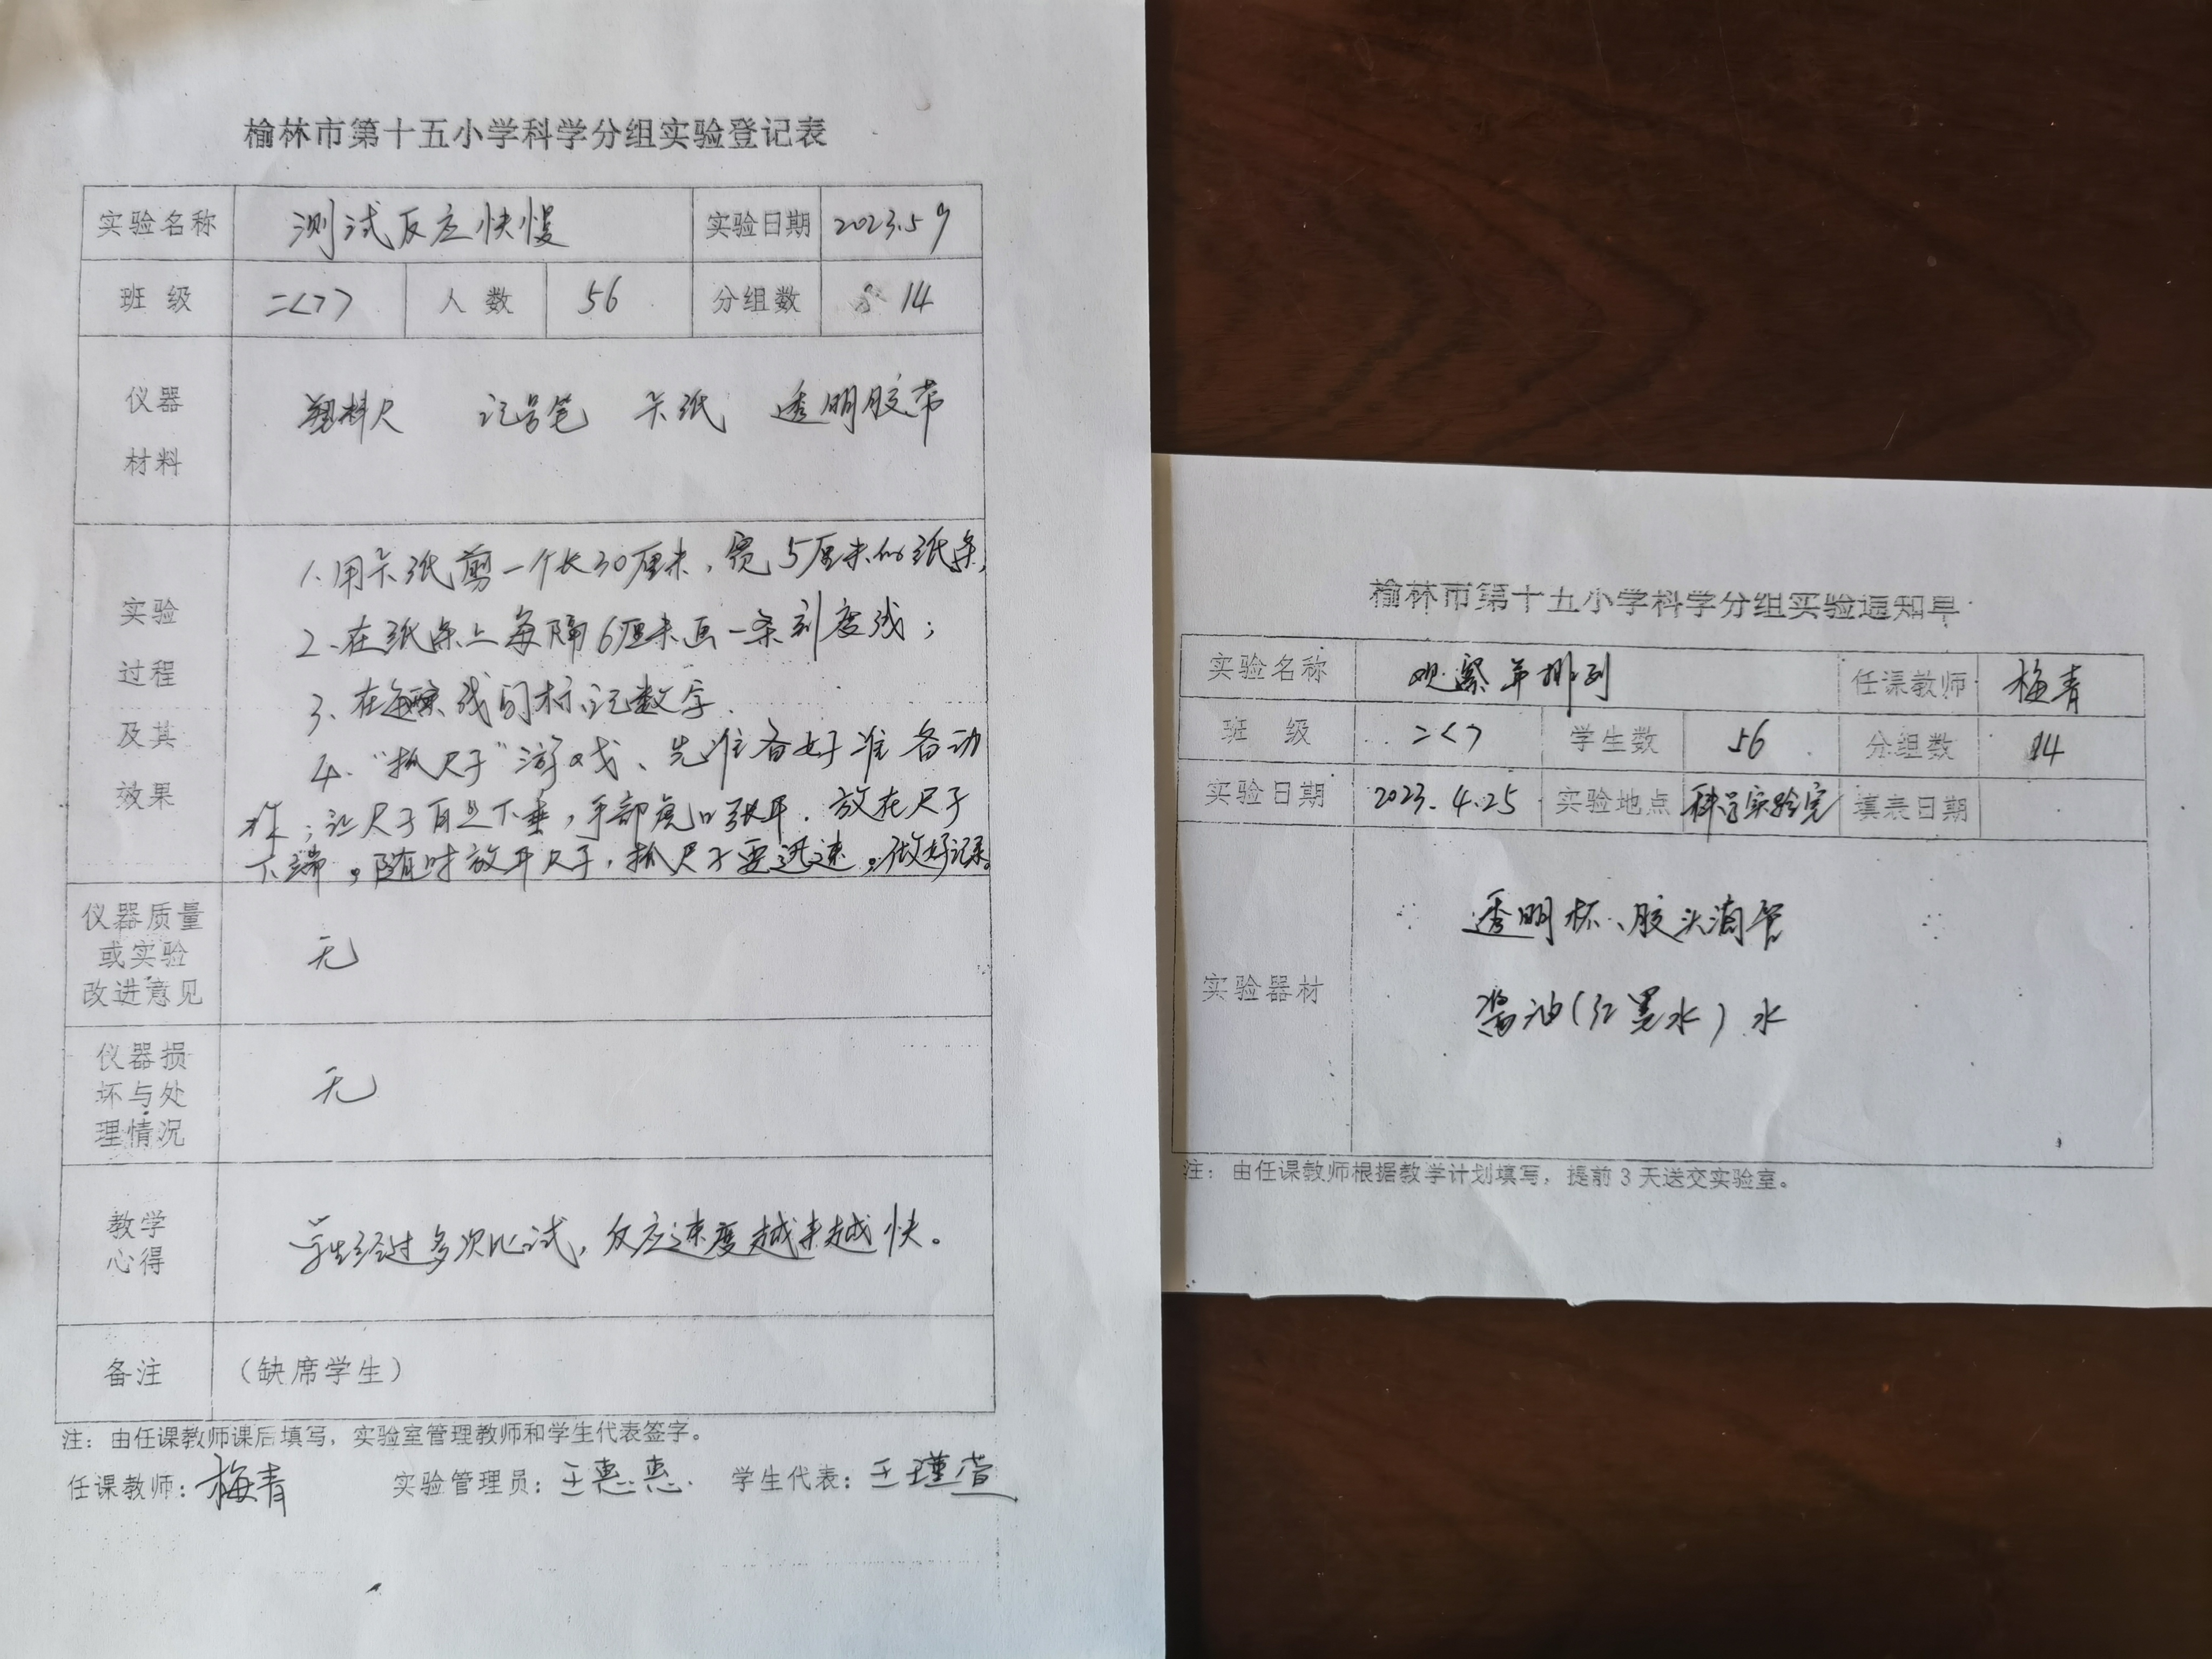 榆林市第十五小学科学分组实验登记表
实验名称 测试反应快慢 实验日期 2023.5 9
班 级 二<7> 人 数 56 分组数 14
仪器
材料
塑料尺 记号笔 卡纸 透明胶带
实验
过程
及其
效果
1、用卡纸剪一个长30厘米，宽5厘米的纸条；
2、在纸条上每隔6厘米画一条刻度线；
3、在每条线间标记数字.
4、“抓尺子”游戏、先准备好准备动
作；让尺子自然下垂，手部虎口张开.放在尺子
下端。随时放开尺子，抓尺子要迅速。做好记录。
仪器质量
或实验
改进意见
无
仪器损
坏与处
理情况
无
教学
心得
学生经过多次比试，反应速度越来越快。
备注 （缺席学生）
注：由任课教师课后填写，实验室管理教师和学生代表签字。
任课教师：梅青 实验管理员：王惠惠 学生代表：王瑾萱
榆林市第十五小学科学分组实验通知单
实验名称 观察 排列 任课教师 梅青
班 级 二<7 学生数 56 分组数 14
实验日期 2023.4.25 实验地点 科学实验室 填表日期
实验器材
透明杯、胶头滴管
酱油（红墨水）水
注：由任课教师根据教学计划填写，提前3天送交实验室。